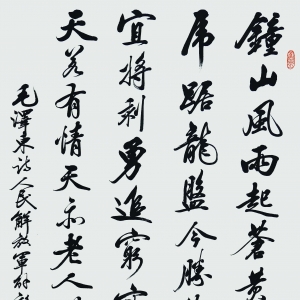 鐘山風雨起蒼黃
虎踞龍盤今勝
宜將剩勇追窮
天若有情天亦老人
毛澤東詩人民解放軍